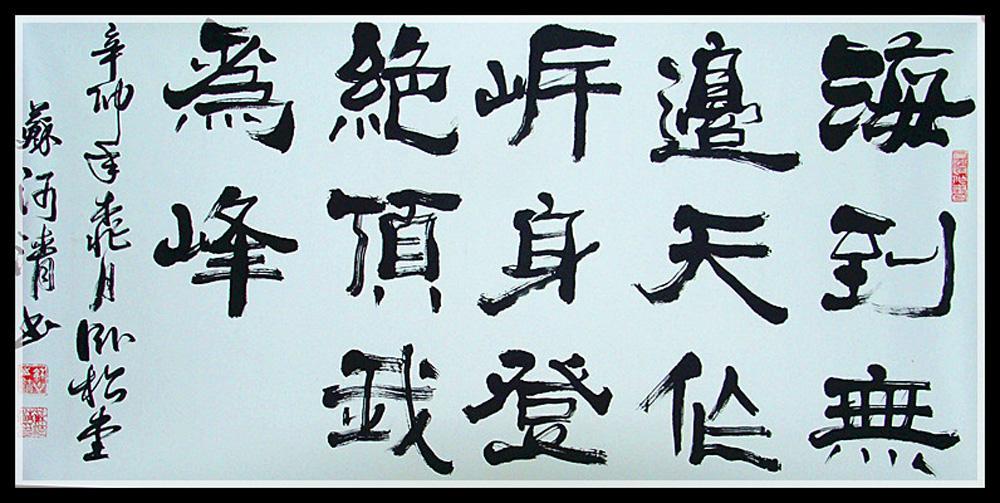 海到無
邊天作
岸身登
絕頂我
為峰
辛卯年桃月卧松堂
蘇河清书